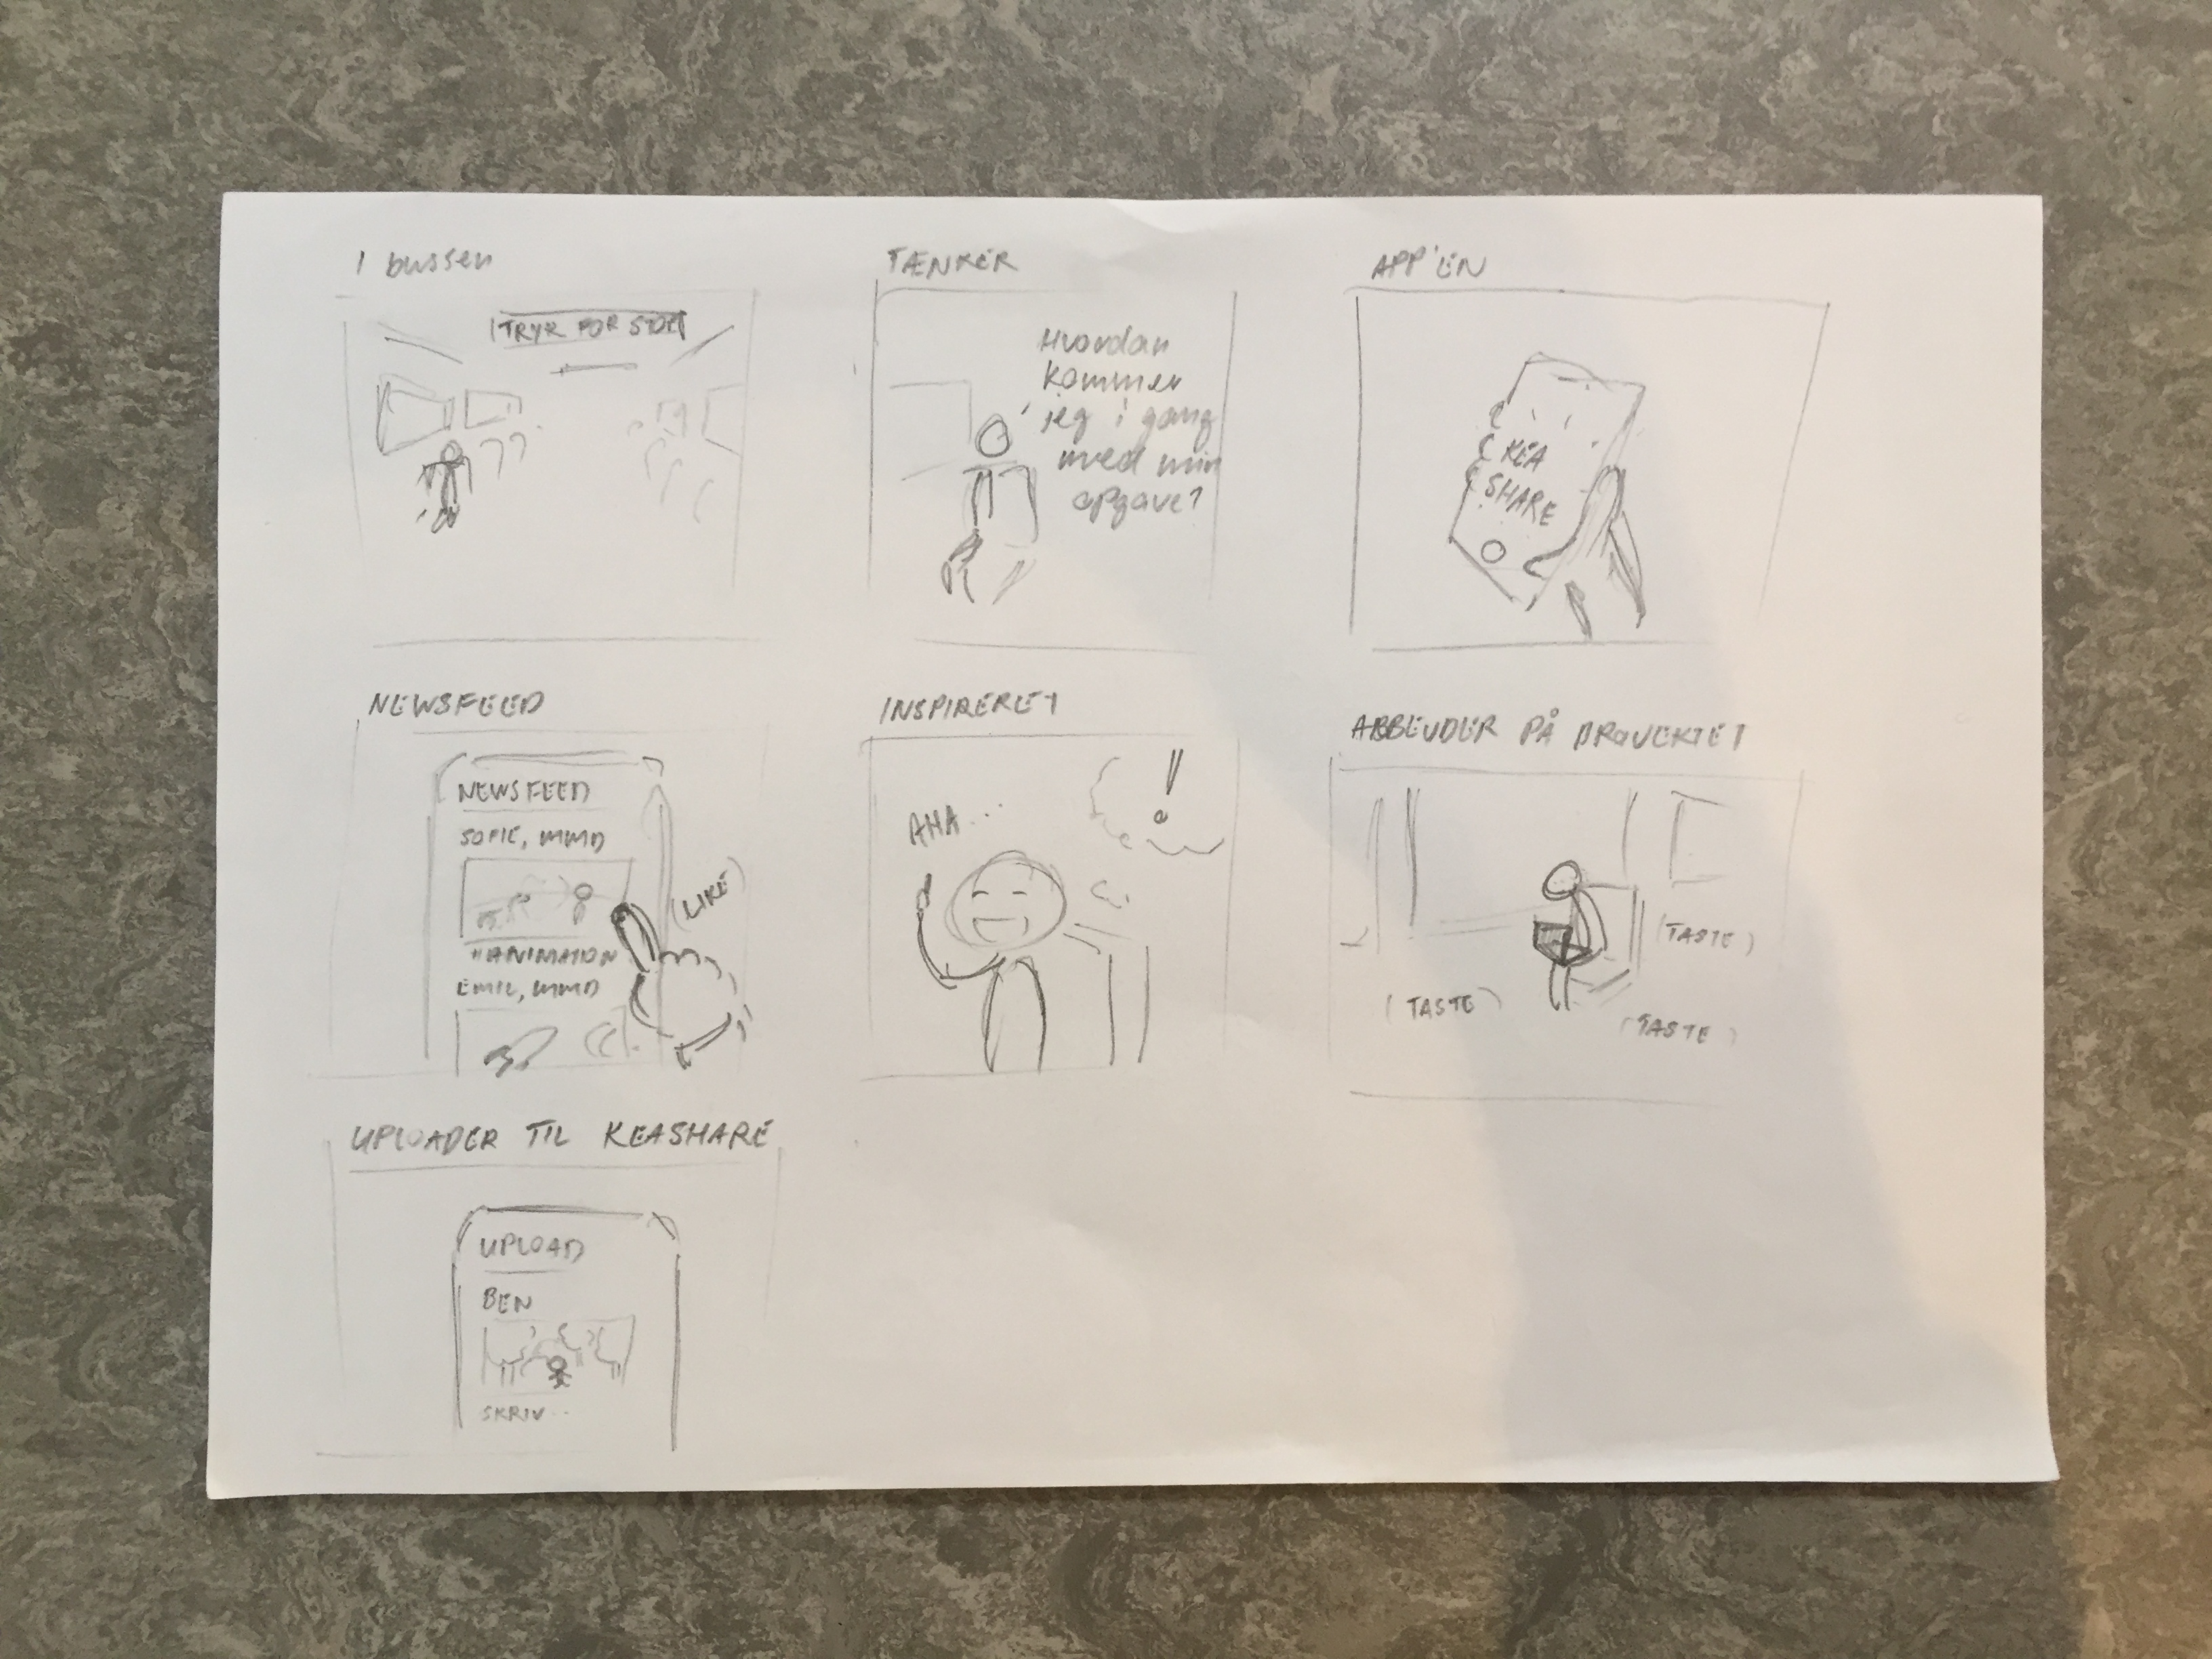 I bussen
TRYK FOR STOP
TÆNKER
Hvordan
kommer
jeg i gang
med min
opgave?
APP'EN
KEA
SHARE
NEWSFEED
NEWSFEED
SOFIE, MMD
(LIKE)
#ANIMATION
EMIL, MMD
INSPIRERET
AHA...
ARBEJDER PÅ PROJEKTET
(TASTE)
(TASTE)
(TASTE)
UPLOADER TIL KEASHARE
UPLOAD
BEN
SKRIV..